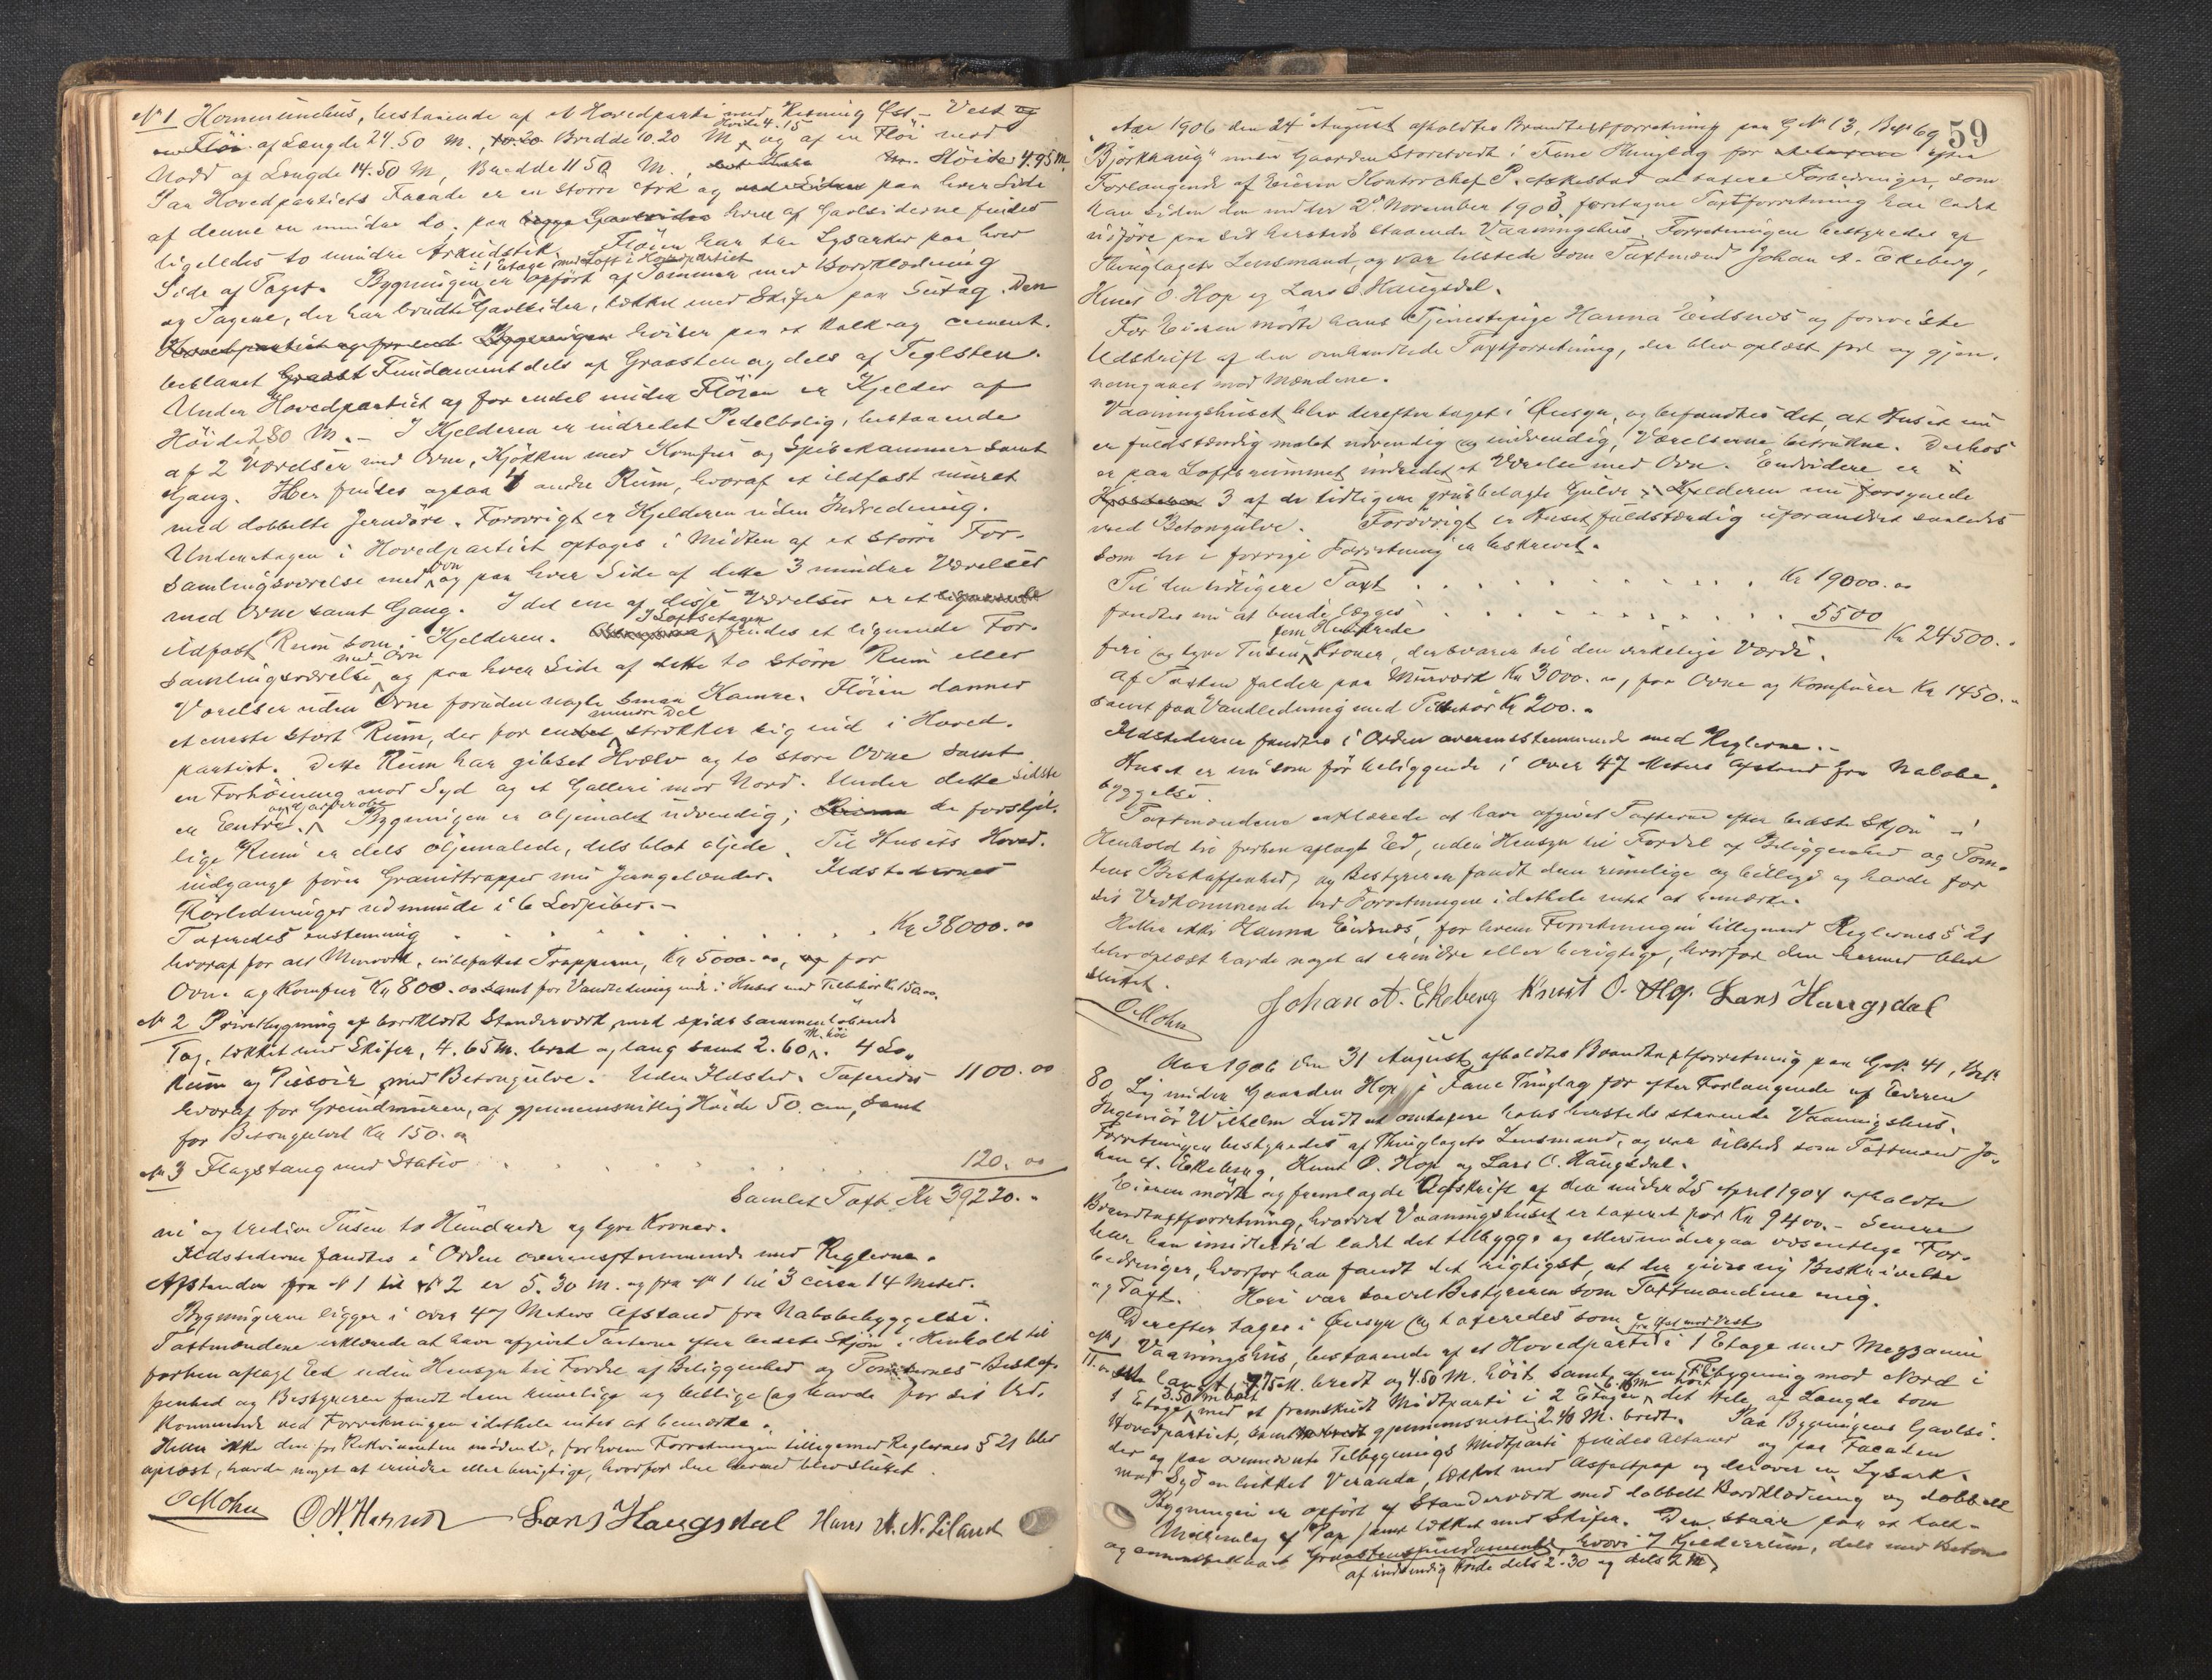 No 1 Kommunehus, bestaaende af et Hovedparti med Retning Øst – Vest og
en Fløi af Længde 24.50 M., 10.20 Bredde 10.20 M, Høide 4.15 og af en Fløi mod
Nord af Længde 14.50 M, Bredde 11.50 M., Høide 4.95 M.
Paa Hovedpartiets Facade er en større Ark og paa hver Side
af denne en mindre do. paa begge Gavlsider hver af Gavlsiderne findes
ligeledes to mindre Arkudstik. Fløien har tre Lysarker paa hver
Side af Taget. Bygningen er i 1 Etage med Loft i Hovedpartiet opført af Tømmer med Bordklædning
og Tagene, der har brudte Gavlsider, tækket med Skifer paa Sutag. Den
Bygningen hviler paa et kalk- og cement-
beblanet Fundament dels af Graasten og dels af Teglsten.
Under Hovedpartiet og for endel under Fløien er Kjelder af
Høide 2.80 M. – I Kjelderen er indredet Pedelbolig, bestaaende
af 2 Værelser med Ovne, Kjøkken med Komfur og Spisekammer samt
Gang. Her findes ogsaa 4 andre Rum, hvoraf et ildfast muret
med dobbelte Jerndøre. Forøvrigt er Kjelderen uden Indredning.
Underetagen i Hovedpartiet optages i Midten af et større For-
samlingsværelse med Ovn og paa hver Side af dette 3 mindre Værelser
med Ovne samt Gang. I det ene af disse Værelser er et lignende
ildfast Rum som i Kjelderen. I Loftsetagen findes et lignende For-
samlingsværelse med Ovn og paa hver Side af dette to større Rum eller
Værelser uden Ovne foruden nogle smaa Kamre. Fløien danner
et eneste stort Rum, der for en mindre Del strækker sig ind i Hoved-
partiet. Dette Rum har gibset Hvælv og to store Ovne samt
en Forhøining mod Syd og et Galleri mod Nord. Under dette sidste
er Entre og Garderobe. Bygningen er oljemalet udvendig; de forskjel-
lige Rum er dels oljemalede, dels blot oljede. Til Husets Hoved-
indgange fører Granittrapper med Jerngelænder. Ildstedernes
Rørledninger udmunde i 6 Lerpiber. –
Taxeredes enstemmig . . . . . . . . . Kr 38000.00
hvoraf for alt Murværk, indbefattet Trapperne, Kr 5000.00, og for
Ovne og Komfur Kr 800.00 samt for Vandledning inde i Huset med Tilbehør Kr 150.00.
No 2 Privetbygning af bordklædt Stenderværk med spidst sammenløbende
Tag, tækket med Skifer, 4.65 M. bred og lang samt 2.60 M. høi. 4 Lo-
Rum og Pissoir med Betongulve. Uden Ildsted. Taxeredes 1100.00
hvoraf for Grundmuren, af gjennemsnitlig Høide 50 cm, samt
for Betongulvet Kr 150.00
No 3 Flagstang med Stativ . . . . . . . 120.00
Samlet Taxt Kr 39220.
ni og tredive Tusen to Hundrede og tyve Kroner.
Ildstederne fandtes i Orden overensstemmende med Reglerne.
Afstanden fra No 1 til No 2 er 5.30 M. og fra No 1 til 3 circa 14 Meter.
Bygningerne ligger i over 47 Meters Afstand fra Nabobebyggelse.
Taxtmændene erklærede at have afgivet Taxterne efter bedste Skjøn i Henhold til
forhen aflagt Ed uden Hensyn til Fordel af Beliggenhed og Tomternes Beskaf-
fenhed og Bestyreren fandt dem rimelige og billige og havde for sit Ved-
kommende ved Forretningen idethele intet at bemærke.
Heller ikke den for Rekvirenten mødende, for hvem Forretningen tilligemed Reglernes § 21 blev
oplæst, havde noget at erindre eller berigtige, hvorfor den hermed blev sluttet.
OMohn Lars Haugsdal
59
Aar 1906 den 24 August afholdtes Brandtaxtforretning paa G No 13, Br No 69
"Bjørkhaug" under Gaarden Storetvedt i Fane Thinglag for efter
Forlangende af Eieren Kontorchef P. Askestad at taxere Forbedringer, som
han siden den under 2den November 1903 foretagne Taxtforretning har ladet
udføre paa sit hersteds staaende Vaaningshus. Forretningen bestyredes af
Thinglagets Lensmand, og var tilstede som Taxtmænd Johan A. Ekeberg,
Knut O. Hop og Lars O. Haugsdal.
For Eieren mødte hans Tjenestepige Hanna Eidsnes og foreviste
Udskrift af den omhandlede Taxtforretning, der blev oplæst for og gjen-
nemgaaet med Mændene.
Vaaningshuset blev derefter taget i Øiesyn, og befandtes det, at Huset nu
er fuldstændig malet udvendig og indvendig, Værelserne betrukne. Derhos
er paa Loftsrummet indredet et Værelse med Ovn. Endvidere er
3 af de tidligere grusbelagte Gulve i Kjelderen nu forsynede
med Betongulve. Forøvrigt er Huset fuldstændig uforandret saaledes
som det i forrige Forretning er beskrevet.
Til den tidligere Taxt . . . . . . . . Kr 19000.00
fandtes nu at burde lægges . . . . . . . 5500
Kr 24500.
fire og tyve Tusen fem Hundrede Kroner, der svarer til den virkelige Værdi.
Af Taxten falder paa Murværk Kr 3000.00, paa Ovne og Komfurer Kr 1450.
samt paa Vandledning med Tilbehør Kr 200.
Ildstederne fandtes i Orden overensstemmende med Reglerne. –
Huset er nu som før beliggende i over 47 Meters Afstand fra Nabobe-
byggelse.
Taxtmændene erklærede at have afgivet Taxterne efter bedste Skjøn i
Henhold til forhen aflagt Ed, uden Hensyn til Fordel af Beliggenhed og Tom-
tens Beskaffenhed, og Bestyreren fandt dem rimelige og billige og havde for
sit Vedkommende ved Forretningen idethele intet at bemærke.
Heller ikke Hanna Eidsnes, for hvem Forretningen tilligemed Reglernes § 21
blev oplæst havde noget at erindre eller berigtige, hvorfor den hermed blev
sluttet.
OMohn Johan A. Ekeberg Knut O. Hop. Lars Haugsdal
Aar 1906 den 31 August afholdtes Brandtaxtforretning paa G No 41, Br No
80, Li under Gaarden Hop i Fane Thinglag for efter Forlangende af Eieren
Ingeniør Wilhelm at omtaxere hans hersteds staaende Vaaningshus.
Forretningen bestyredes af Thinglagets Lensmand, og var tilstede som Taxtmænd Jo-
han A. Ekeberg, Knut O. Hop og Lars O. Haugsdal.
Eieren mødte og fremlagde Udskrift af den under 25 April 1904 afholdte
Brandtaxtforretning, hvorved Vaaningshuset er taxeret for Kr 9400. – Senere
har han imidlertid ladet det tilbygge og ellers undergaa væsentlige For-
bedringer, hvorfor han fandt det rigtigst, at der gives ny Beskrivelse
og Taxt. Heri var saavel Bestyreren som Taxtmændene enig.
Derefter toges i Øiesyn og taxeredes som
No 1 Vaaningshus, bestaaende af et Hovedparti fra Øst mod Vest i 1 Etage med Mezzanin
11. langt, 7.75 M. bredt og 4.50 M. høit, samt af en Tilbygning mod Nord i
1 Etage 3.50 M. høit med et fremskudt Midtparti i 2 Etager det Hele af Længde som
Hovedpartiet, samt gjennemsnitlig 2.40 M. bredt. Paa Bygningens Gavlsi-
der og paa ovennævnte Tilbygnings Midtparti findes Altaner og paa Facaden
mod Syd en lukket Veranda, tækket med Asfaltpap og derover en Lysark.
Bygningen er opført af Stenderværk med dobbelt Bordklædning og dobbelt
Mellemlag af Pap samt tækket med Skifer. Den staar paa et kalk-
og cementbeblandet Graastensfundament, hvori 7 Kjelderrum, dels med Beton
af indvendig Høide dels 2.30 og dels 2 M.